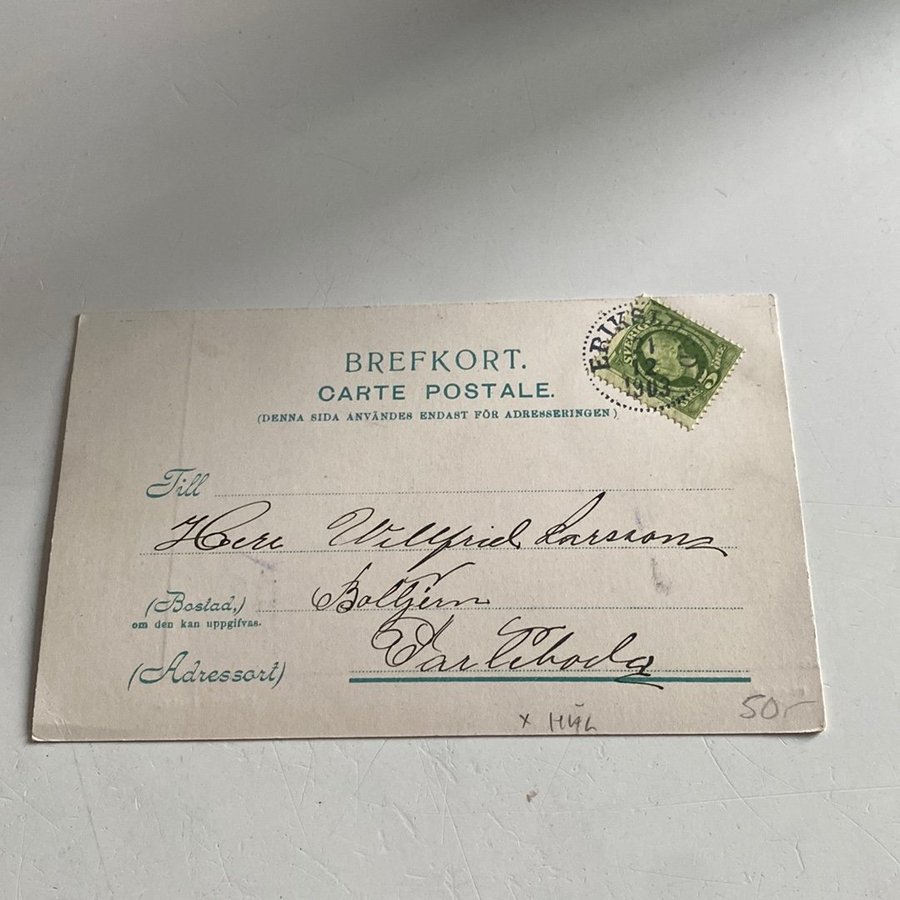 BREFKORT.
CARTE POSTALE.
(DENNA SIDA ANVÄNDES ENDAST FÖR ADRESSERINGEN)
ERIKSLU
1
12
1903
SVERIGE
5 ÖRE
Till
Herr Willfried Larsson
(Bostad,)
om den kan uppgifvas.
(Adressort)
x HÖL
50:-